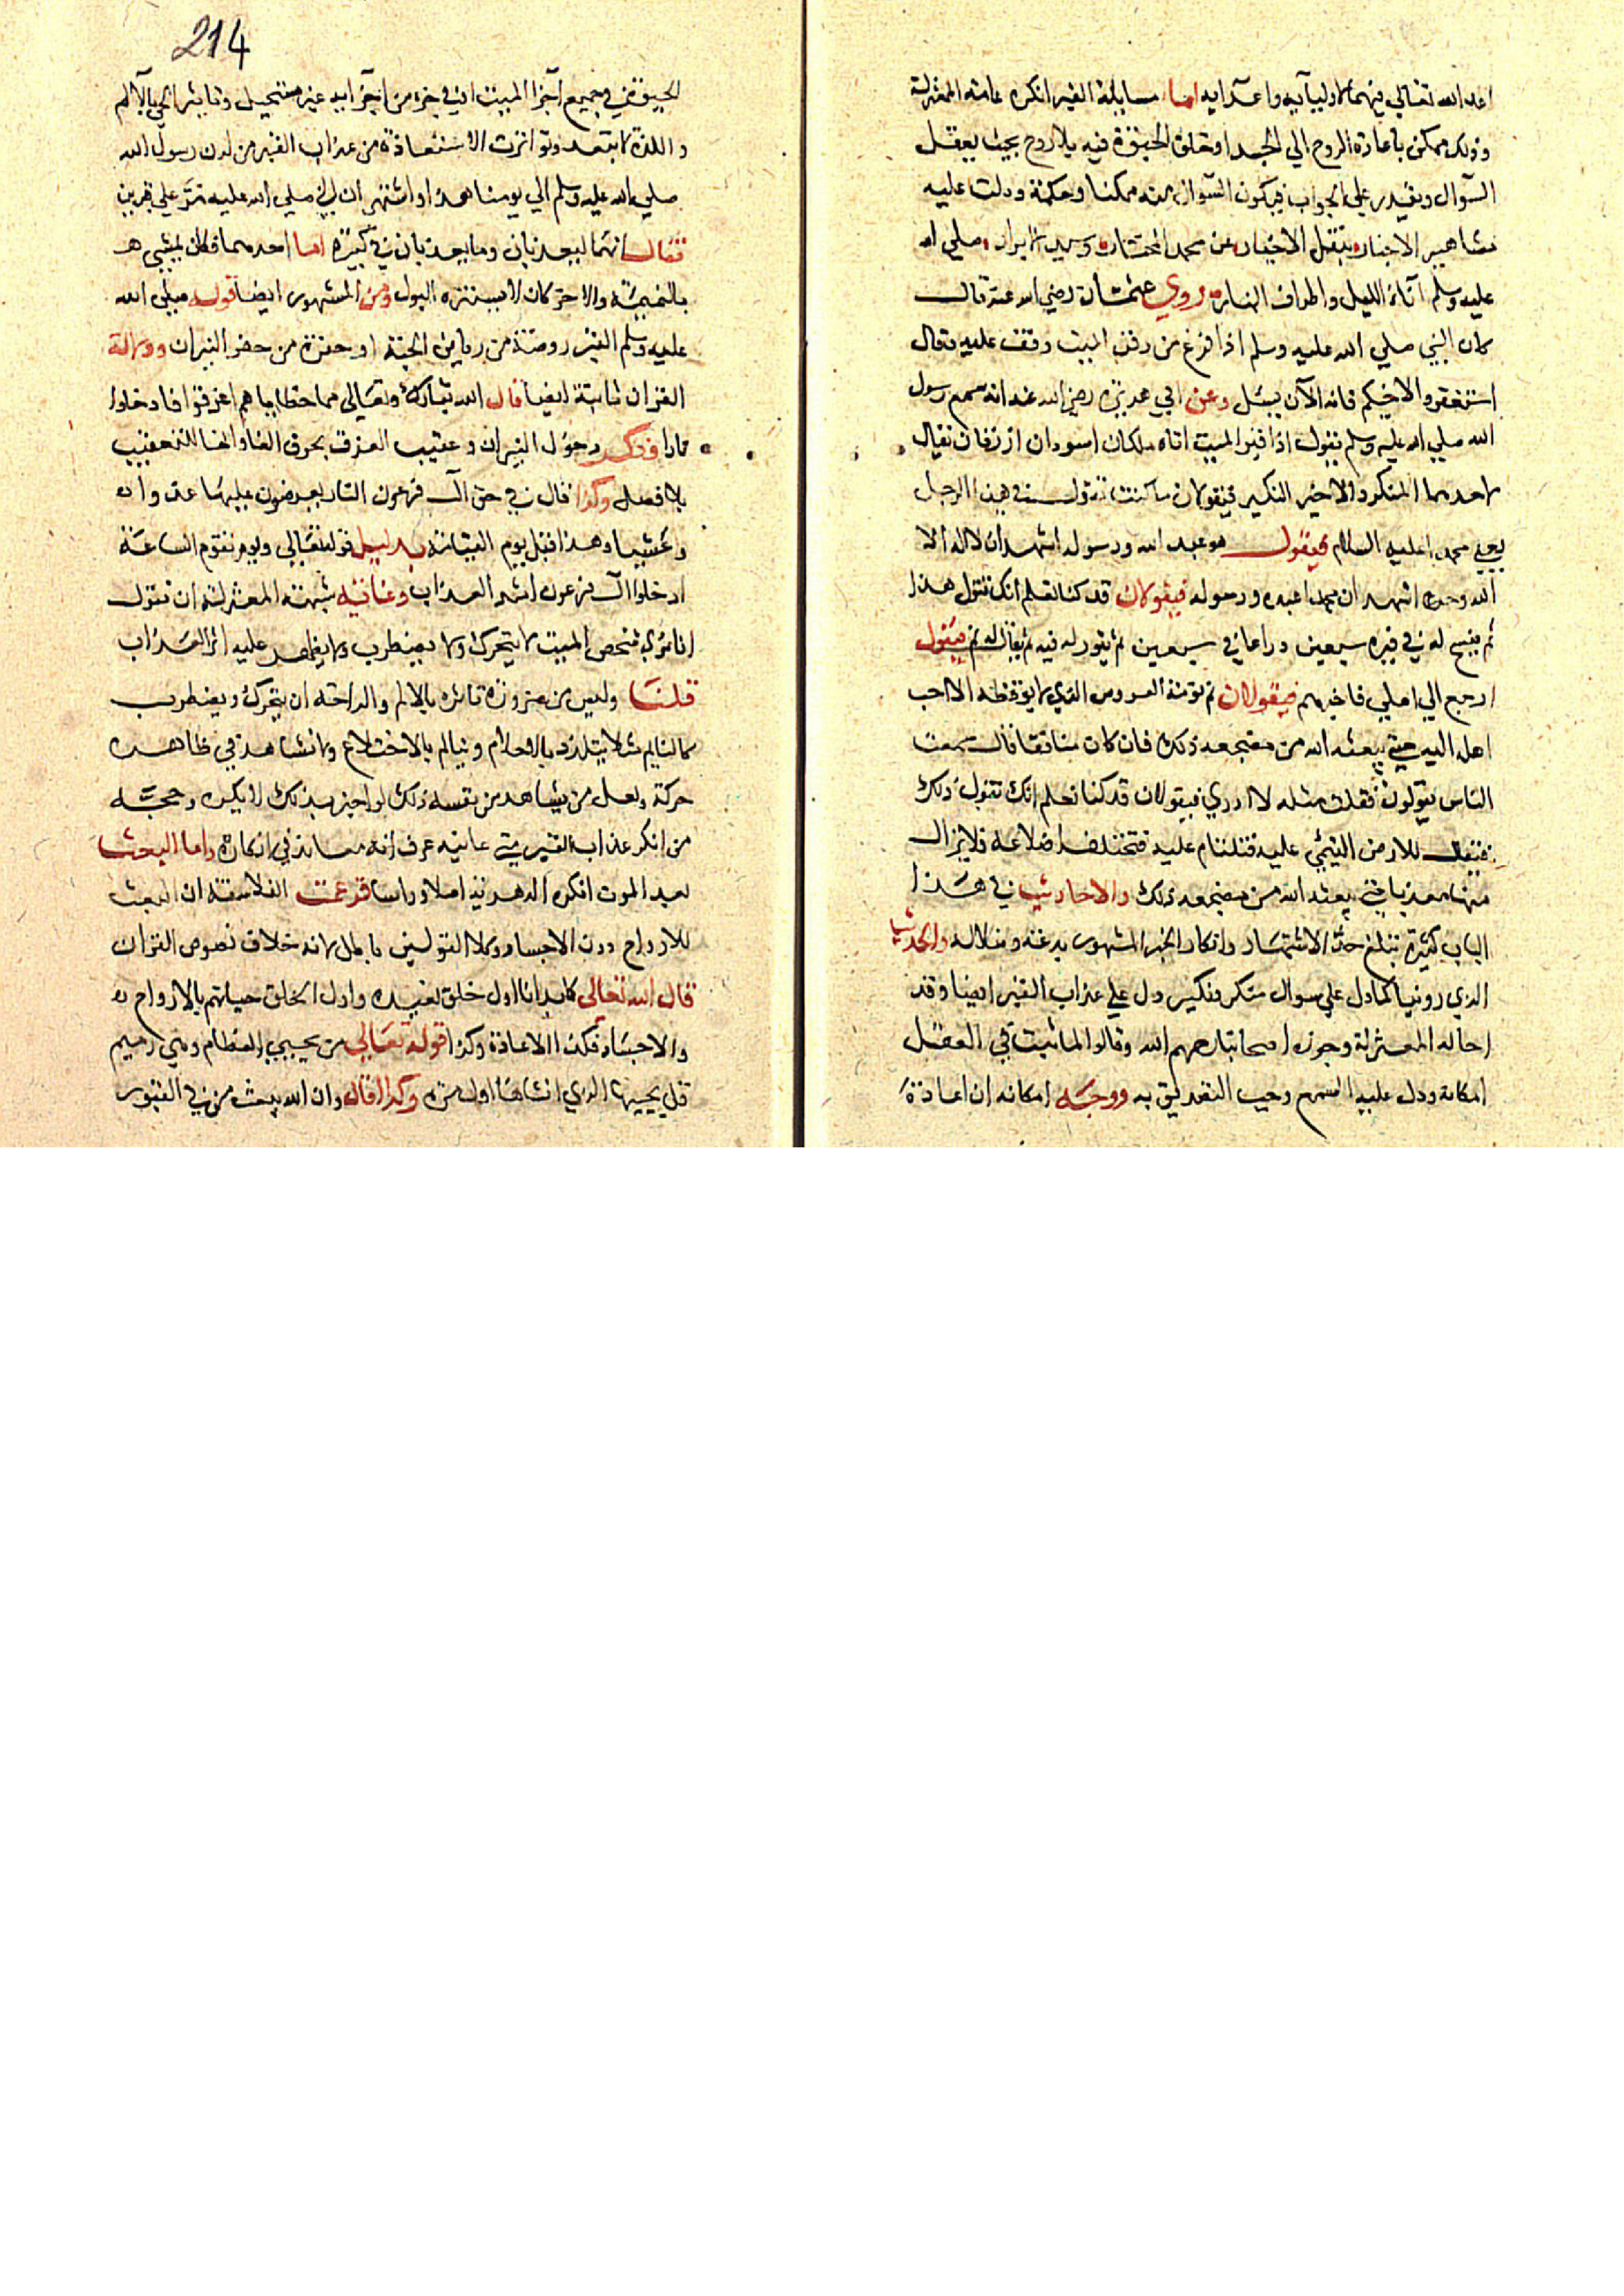 اعد الله تعالى فيهما لاوليآيه واعدآيه اما مسايلة القبر انكره عامة المعتزلة
وذلك ممكن باعادة الروح الي الجسد او خلق الحيوة فيه بلا روح بحيث يعقل
السوآل ويقدر علي الجواب فيكون السوال عنه ممكنا وحكمة ودلت عليه
مشاهير الاخبار بنقل الاخيار عن محمد المختار وسيد الابرار صلي الله
عليه وسلم آناء الليل واطراف النهار روي عثمان رضي الله عنه قال
كان النبي صلي الله عليه وسلم اذا فرغ من دفن الميت وقف عليه فقال
استغفروا لاخيكم فانه الآن يسئل وعن ابي هريرة رضي الله عنه انه سمع رسول
الله صلي الله عليه وسلم يقول اذا قبر الميت اتاه ملكان اسودان ازرقان يقال
لاحدهما المنكر والاخير النكير فيقولان ما كنت تقول في هذا الرجل
يعني محمدا عليه السلام فيقول هو عبد الله ورسوله اشهد ان لا اله الا
الله وحده اشهد ان محمدا عبده ورسوله فيقولان قد كنا نعلم انك تقول هذا
ثم يفسح له في قبره سبعين دراعا في سبعين ثم ينور له فيه ثم يقال له نم فيقول
ارجع الي اهلي فاخبرهم فيقولان نم نومة العروس الذي لا يوقظه الا احب
اهله اليه حتي يبعثه الله من مضجعه ذلك فان كان منافقا قال سمعت
الناس يقولون فقلت مثله لا ادري فيقولان قد كنا نعلم انك تقول ذلك
فيقال للارض التئمي عليه فتلتئام عليه فتختلف اضلاعه فلا يزال
فيها معذبا حتي يبعثه الله من مضجعه ذلك والاحاديث في هذا
الباب كثيرة تبلغ حد الاشتهار وانكار الخبر المشهور بدعة وضلالة والحديث
الذي روينا كما دل علي سوال منكر ونكير دل علي عذاب القبر ايضا وقد
احاله المعتزلة وجوزه اصحابنا رحمهم الله وقالوا لما ثبت في العقل
امكانه ودل عليه السمع وجب التصديق به ووجه امكانه ان اعادة
214
الحيوة في جميع اجزآ الميت او في جزء من اجزآيه غير مستحيل وتاثير الحي بالآلم
واللذة لا يبعد وتواترت الاستعاذة من عذاب القبر من لدن رسول الله
صلي الله عليه وسلم الي يومنا هذا واشتهر ان النبي صلي الله عليه مر علي قبرين
فقال انهما ليعذبان وما يعذبان في كبيرة اما احدهما فكان يمشي
بالنميمة والاخر كان لا يستنزه البول ومن المشهور ايضا قوله صلي الله
عليه وسلم القبر روضة من رياض الجنة او حفرة من حفر النيران ودلالة
القران ثابتة ايضا قال الله تبارك وتعالي مما خطاياهم اغرقوا فادخلوا
نارا فذكر دخول النيران وعقيب الغرق بحرف الفا والفا للتعقيب
بلا فصل وكذا قال في حق آل فرعون النار يعرضون عليها غدوا
وعشيا وهذا قبل يوم القيامة بدليل قوله تعالي ويوم تقوم الساعة
ادخلوا آل فرعون اشد العذاب وغاية شبهة المعتزلة ان تقول
انا نري شخص الميت لا يتحرك ولا يضطرب ولا يظهر عليه اثر العذاب
قلنا وليس من ضرورة تاثره بالالم والراحة ان يتحرك ويضطرب
كالنايم مثلا يتلذذ بالاحلام ويتالم بالاختلاع ولا نشاهد في ظاهره
حركة ولعل من يشاهد من نفسه ذلك لو اخبر بذلك لا ينكره وحجة
من انكر عذاب القبر متي عاينه عرف انه معاند في انكاره واما البعث
بعد الموت انكره الدهرية اصلا وراسا فزعمت الفلاسفة ان البعث
للارواح دون الاجساد وكلا القولين باطل لانه خلاف نصوص القران
قال الله تعالي كما بدانا اول خلق نعيده واول الخلق حياتهم بالارواح
والاجساد فكذا الاعادة وكذا قوله تعالي من يحيي العظام وهي رميم
قل يحييها الذي انشاها اول مرة وكذا قال وان الله يبعث من في القبور